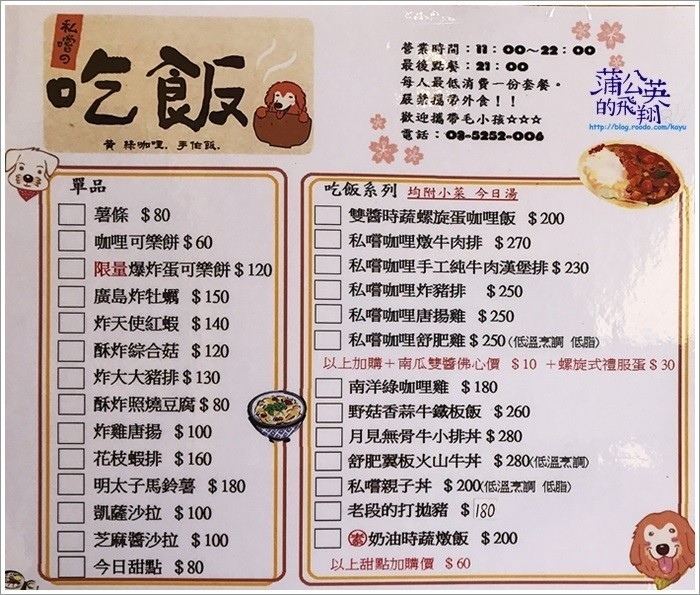 私嚐の
吃飯
黃 綠咖哩．手作飯．
營業時間：11：00～22：00
最後點餐：21：00
每人最低消費一份套餐。
嚴禁攜帶外食！！
歡迎攜帶毛小孩☆☆☆
電話：03-5252-006
蒲公英
的飛翔
http://blog.roodo.com/kayu
單品
薯條 $80
咖哩可樂餅 $60
限量爆炸蛋可樂餅 $120
廣島炸牡蠣 $150
炸天使紅蝦 $140
酥炸綜合菇 $120
炸大大豬排 $130
酥炸照燒豆腐 $80
炸雞唐揚 $100
花枝蝦排 $160
明太子馬鈴薯 $180
凱薩沙拉 $100
芝麻醬沙拉 $100
今日甜點 $80
吃飯系列 均附小菜 今日湯
雙醬時蔬螺旋蛋咖哩飯 $200
私嚐咖哩燉牛肉排 $270
私嚐咖哩手工純牛肉漢堡排 $230
私嚐咖哩炸豬排 $250
私嚐咖哩唐揚雞 $250
私嚐咖哩舒肥雞 $250 (低溫烹調 低脂)
以上加購＋南瓜雙醬佛心價 $10 ＋螺旋式禮服蛋 $30
南洋綠咖哩雞 $180
野菇香蒜牛鐵板飯 $260
月見無骨牛小排丼 $280
舒肥翼板火山牛丼 $280 (低溫烹調)
私嚐親子丼 $200 (低溫烹調 低脂)
老段的打拋豬 $180
素 奶油時蔬燉飯 $200
以上甜點加購價 $60